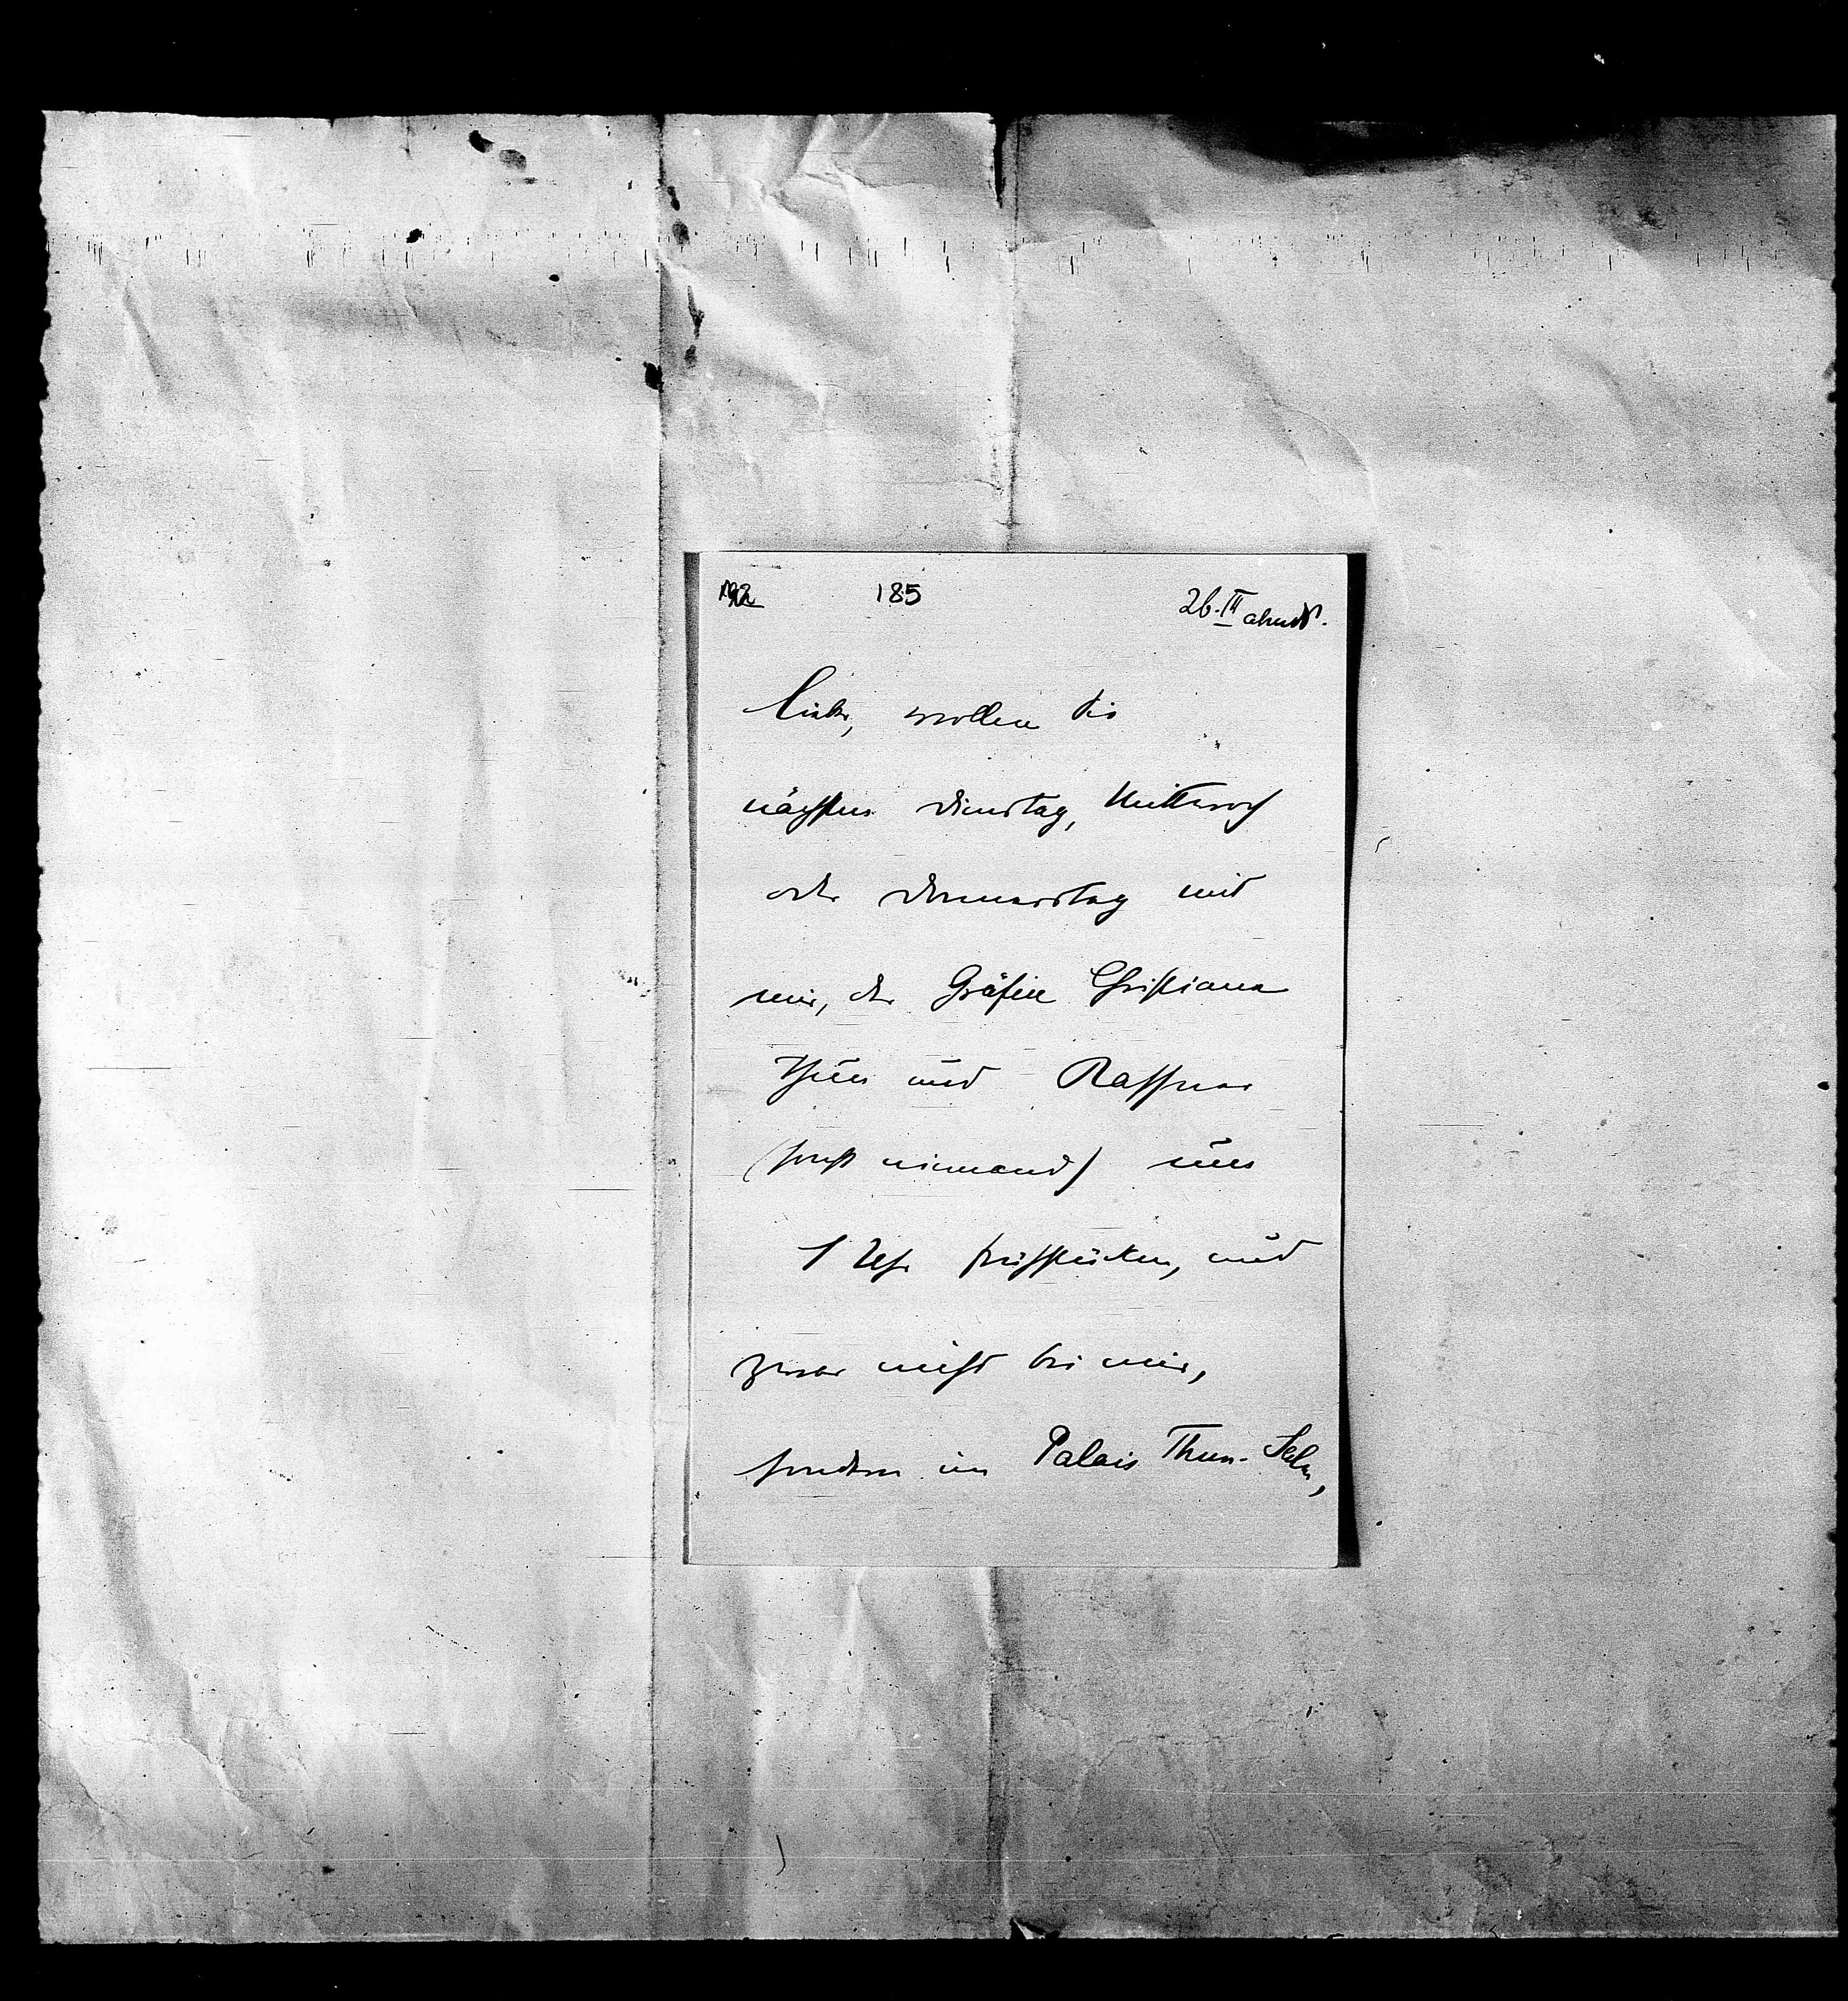 185 26. III abends.
Lieber, wollen Sie
nächsten Dienstag, Mittwoch
oder Donnerstag mit
mir, der Gräfin Christiane
Thun und Kassner
(sonst niemand) um
1 Uhr frühstücken, und
zwar nicht bei mir,
sondern im Palais Thun-Salm,